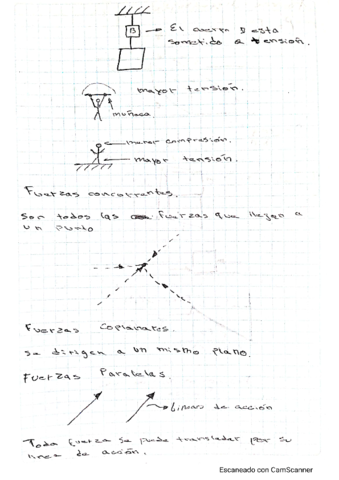 B → El cuerpo B esta
sometido a tensión.
mayor tensión.
muñeca
menor compresión.
mayor tensión.
Fuerzas concurrentes.
Son todos las fuerzas que llegan a
un punto
Fuerzas Coplanares.
Se dirigen a un mismo plano.
Fuerzas Paralelas.
Lineas de acción
Toda fuerza se puede transladar por su
linea de acción.
Escaneado con CamScanner